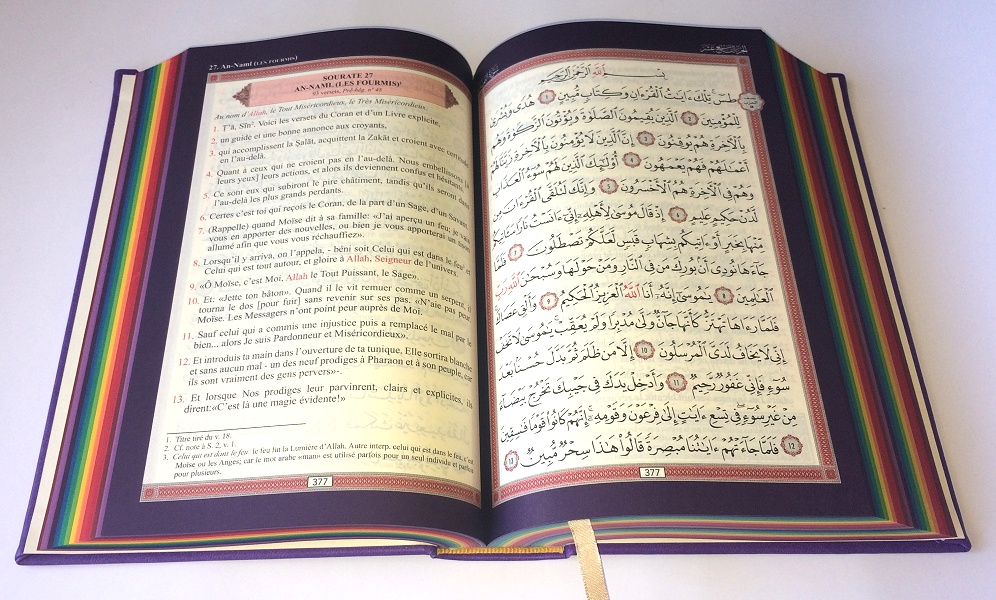 27. An-Naml (LES FOURMIS)
SOURATE 27
AN-NAML (LES FOURMIS)¹
93 versets, Pré-hég. n° 48
Au nom d'Allah, le Tout Miséricordieux, le Très Miséricordieux.
1. Ṭ'ā, Sīn². Voici les versets du Coran et d'un Livre explicite,
2. un guide et une bonne annonce aux croyants,
3. qui accomplissent la Ṣalāt, acquittent la Zakāt et croient avec certitude
en l'au-delà.
4. Quant à ceux qui ne croient pas en l'au-delà. Nous embellissons
leurs yeux] leurs actions, et alors ils deviennent confus et hésitants.
5. Ce sont eux qui subiront le pire châtiment, tandis qu'ils seront dans
l'au-delà les plus grands perdants.
6. Certes c'est toi qui reçois le Coran, de la part d'un Sage, d'un Savant.
7. (Rappelle) quand Moïse dit à sa famille: «J'ai aperçu un feu; je vais
vous en apporter des nouvelles, ou bien je vous apporterai un
allumé afin que vous vous réchauffiez».
8. Lorsqu'il y arriva, on l'appela, - béni soit Celui qui est dans le feu³ et
Celui qui est tout autour, et gloire à Allah, Seigneur de l'univers.
9. «Ô Moïse, c'est Moi, Allah le Tout Puissant, le Sage».
10. Et: «Jette ton bâton». Quand il le vit remuer comme un serpent, il
tourna le dos [pour fuir] sans revenir sur ses pas. «N'aie pas peur
Moïse. Les Messagers n'ont point peur auprès de Moi.
11. Sauf celui qui a commis une injustice puis a remplacé le mal par le
bien... alors Je suis Pardonneur et Miséricordieux».
12. Et introduis ta main dans l'ouverture de ta tunique, Elle sortira blanche
et sans aucun mal - un des neuf prodiges à Pharaon et à son peuple, car
ils sont vraiment des gens pervers»-.
13. Et lorsque Nos prodiges leur parvinrent, clairs et explicites, ils
dirent:«C'est là une magie évidente!»
1. Titre tiré du v. 18.
2. Cf. note à S. 2, v. 1.
3. Celui qui est dans le feu: le feu fut la Lumière d'Allah. Autre interp. celui qui est dans le feu, c'est
Moïse ou les Anges; car le mot arabe «man» est utilisé parfois pour un seul individu et parfois
pour plusieurs.
377
بِسْمِ اللَّهِ الرَّحْمَٰنِ الرَّحِيمِ
طسٓ تِلْكَ ءَايَٰتُ الْقُرْءَانِ وَكِتَابٍ مُّبِينٍ ١ هُدًى وَبُشْرَىٰ
لِلْمُؤْمِنِينَ ٢ الَّذِينَ يُقِيمُونَ الصَّلَوٰةَ وَيُؤْتُونَ الزَّكَوٰةَ وَهُم
بِالْءَاخِرَةِ هُمْ يُوقِنُونَ ٣ إِنَّ الَّذِينَ لَا يُؤْمِنُونَ بِالْءَاخِرَةِ زَيَّنَّا لَهُمْ
أَعْمَٰلَهُمْ فَهُمْ يَعْمَهُونَ ٤ أُوْلَٰٓئِكَ الَّذِينَ لَهُمْ سُوٓءُ الْعَذَابِ
وَهُمْ فِي الْءَاخِرَةِ هُمُ الْأَخْسَرُونَ ٥ وَإِنَّكَ لَتُلَقَّى الْقُرْءَانَ مِن
لَّدُنْ حَكِيمٍ عَلِيمٍ ٦ إِذْ قَالَ مُوسَىٰ لِأَهْلِهِۦٓ إِنِّيٓ ءَانَسْتُ نَارًا سَـَٔاتِيكُم
مِّنْهَا بِخَبَرٍ أَوْ ءَاتِيكُم بِشِهَابٍ قَبَسٍ لَّعَلَّكُمْ تَصْطَلُونَ ٧ فَلَمَّا
جَآءَهَا نُودِيَ أَنۢ بُورِكَ مَن فِي النَّارِ وَمَنْ حَوْلَهَا وَسُبْحَٰنَ اللَّهِ رَبِّ
الْعَٰلَمِينَ ٨ يَٰمُوسَىٰٓ إِنَّهُۥٓ أَنَا اللَّهُ الْعَزِيزُ الْحَكِيمُ ٩ وَأَلْقِ عَصَاكَ
فَلَمَّا رَءَاهَا تَهْتَزُّ كَأَنَّهَا جَآنٌّ وَلَّىٰ مُدْبِرًا وَلَمْ يُعَقِّبْ يَٰمُوسَىٰ لَا تَخَفْ
إِنِّي لَا يَخَافُ لَدَيَّ الْمُرْسَلُونَ ١٠ إِلَّا مَن ظَلَمَ ثُمَّ بَدَّلَ حُسْنًۢا بَعْدَ
سُوٓءٍ فَإِنِّي غَفُورٌ رَّحِيمٌ ١١ وَأَدْخِلْ يَدَكَ فِي جَيْبِكَ تَخْرُجْ بَيْضَآءَ
مِنْ غَيْرِ سُوٓءٍ فِي تِسْعِ ءَايَٰتٍ إِلَىٰ فِرْعَوْنَ وَقَوْمِهِۦٓ إِنَّهُمْ كَانُوا۟ قَوْمًا فَٰسِقِينَ
١٢ فَلَمَّا جَآءَتْهُمْ ءَايَٰتُنَا مُبْصِرَةً قَالُوا۟ هَٰذَا سِحْرٌ مُّبِينٌ ١٣
377